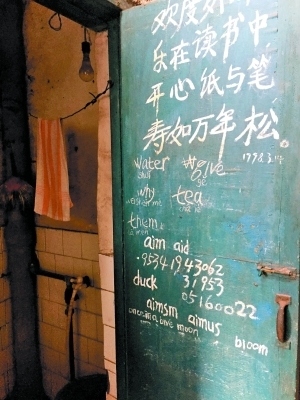 欢度
乐在读书中
开心纸与笔
寿如万年松。
water give
why tea
them
aim aid
95341943062
duck 31953
05160022
aimsm aimus
moon bloom